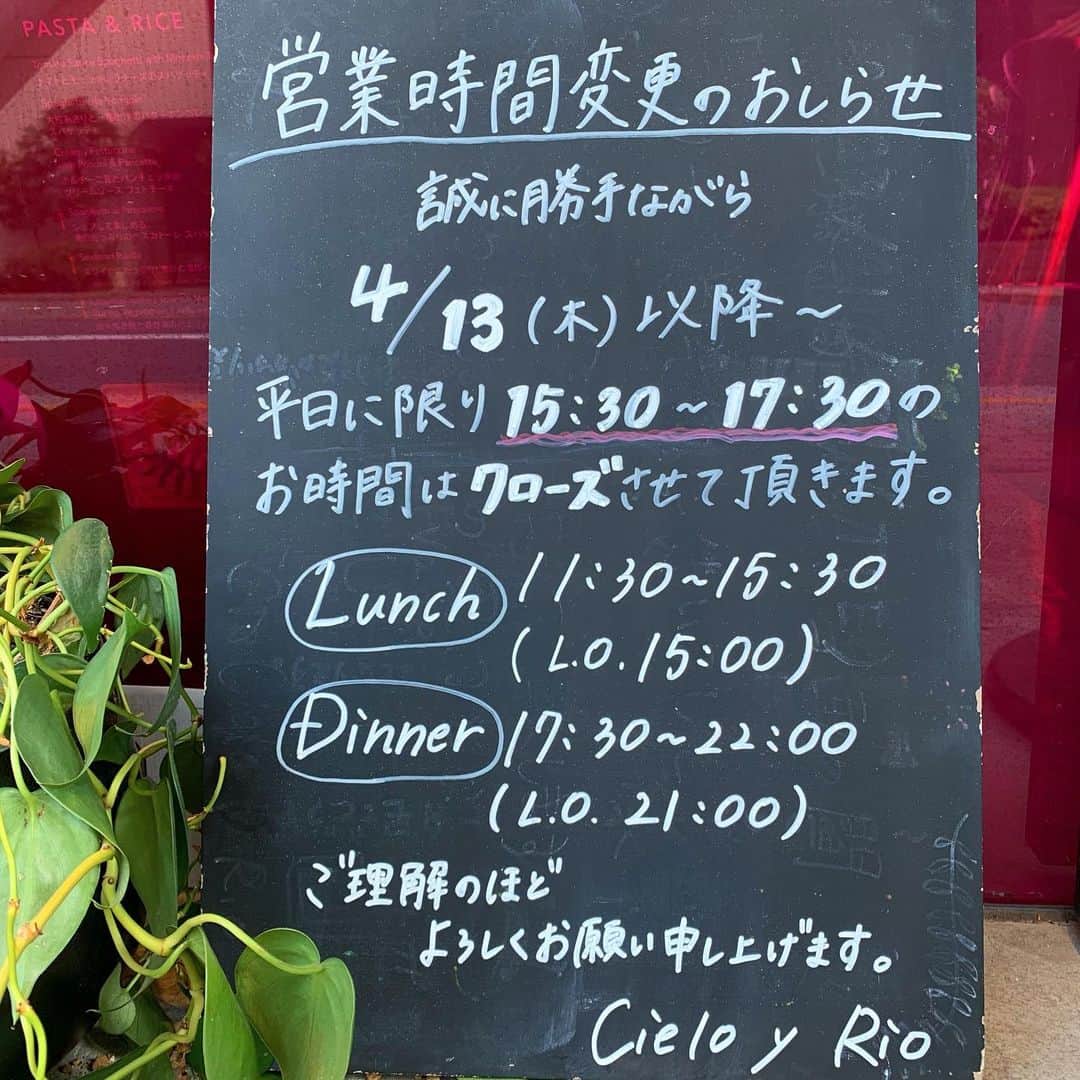 PASTA & RICE
営業時間変更のおしらせ
誠に勝手ながら
4/13(木)以降~
平日に限り 15:30~17:30の
お時間はクローズさせて頂きます。
Lunch 11:30~15:30
(L.O. 15:00)
Dinner 17:30~22:00
(L.O. 21:00)
ご理解のほど
よろしくお願い申し上げます。
Cielo y Rio